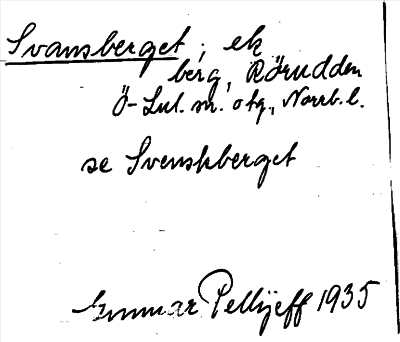 Svansberget, ek
berg, Rörudden
Ö-Lul. sn. o tg., Norrb. l.
se Svenskberget
Gunnar Pellijeff 1935